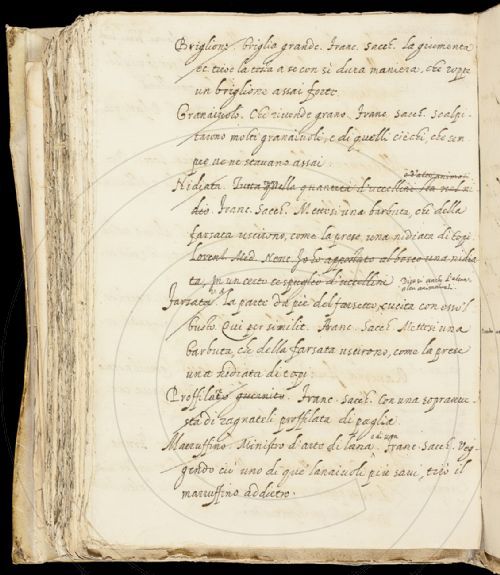 Briglione. briglia grande. Franc. Sacch. La giumenta
et tirò la testa a se con sì dura maniera, che roppe
un briglione assai forte.
Granaiuolo. Che rivende grano. Franc. Sacch.
tarono molti granaiuoli, e di quelli ciechi, che sem
pre ve ne stavano assai.
o d'altri animali
Nidiata. Tutta quella quantità d'uccellini, sta nel ni
dio. Franc. Sacch. Mettesi una barbuta, che della
farsata uscirono, come la prese una nidiata di topi.
Lorenz. Med. Nenc. Io ho appostato al bosco una nidia
ta, in un certo cespuglio d'uccellini
Farsata. La parte da piè del farsetto, cucita con esso 'l
busto. Qui per similit. Franc. Sacch. Mettesi una
barbuta, che della farsata uscirono, come la prese
una nidiata di topi.
Proffilato, guernito. Franc. Sacch. Con una sopravve
sta di zagnateli proffilata di paglia
Mazzuffino. Ministro d'arte di lana. Franc. Sacch. Veg
gendo ciò uno di que' lanaiuoli più savi, tirò il
mazzuffino addietro.